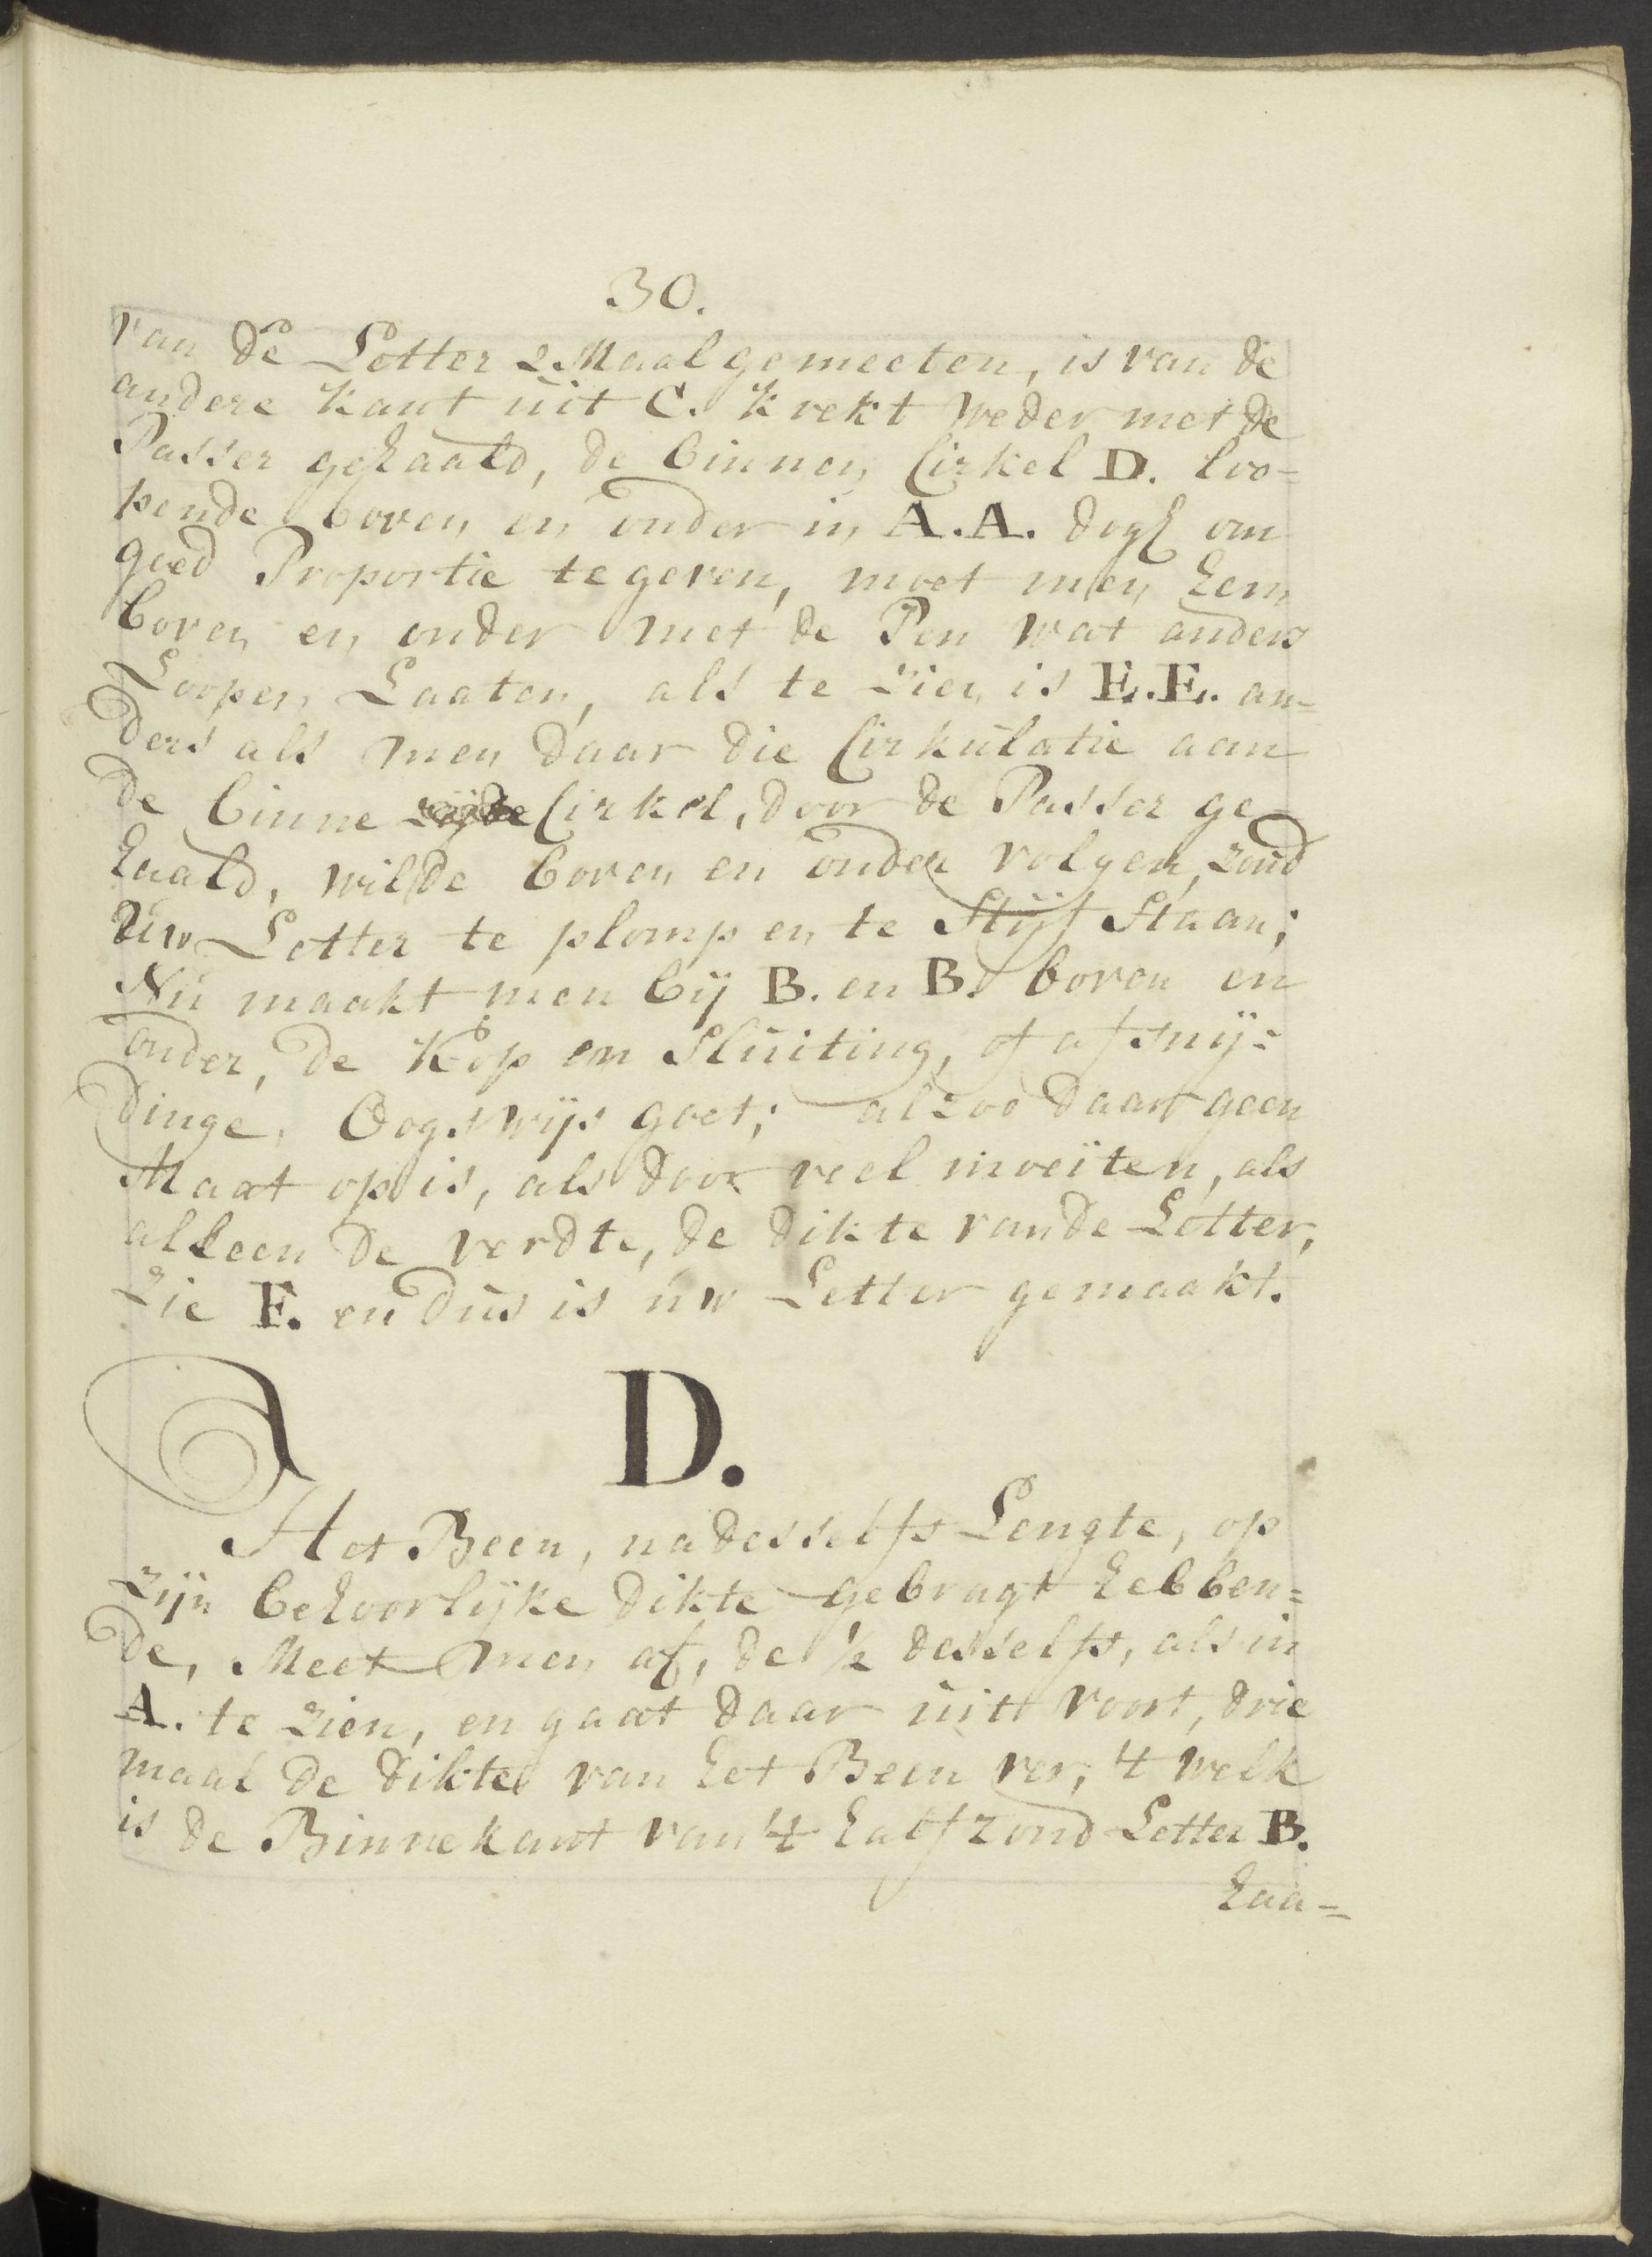 30.
van de Letter 2 Maal gemeeten, is van de
andere kant uit C. krekt weder met de
Passer gehaald, de binnen Cirkel D. loo=
pende boven en onder in A.A. dogh om
goed Proportie te geven, moet men hem
boven en onder met de Pen wat anders
Loopen Laaten, als te zien is E.E. an=
ders als men daar die Cirkulatie aan
de binne zijde Cirkel, door de Passer ge=
haald, wilde boven en onder volgen, zoud
uw Letter te plomp en te Stijf Staan;
Nu maakt men bij B. en B. boven en
onder, de Kop en Sluiting, of afsnij=
dinge, Oogswijs goet; alzoo daar geen
Maat op is, als door veel moeiten, als
alleen de verdte, de dikte van de Letter,
Zie F. en dus is uw Letter gemaakt.
D.
Het Been, na desselfs Lengte, op
zijn behoorlijke dikte gebragt hebben=
de, Meet men af, de ½ desselfs, als in
A. te zien, en gaat daar uit voort, drie
maal de dikte van het Been ver, 't welk
is de Binnekant van 't half rond Letter B.
haa=